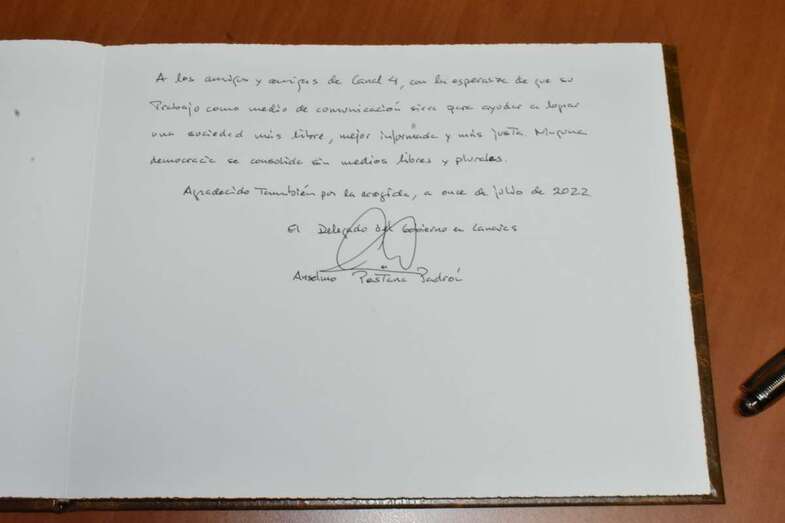 A los amigos y amigas de Canal 4, con la esperanza de que su
Trabajo como medio de comunicación sirva para ayudar a lograr
una sociedad más libre, mejor informada y más justa. Ninguna
democracia se consolida sin medios libres y plurales.
Agradecido También por la acogida, a once de julio de 2022
El Delegado del Gobierno en Canarias
Anselmo Pestana Padrón